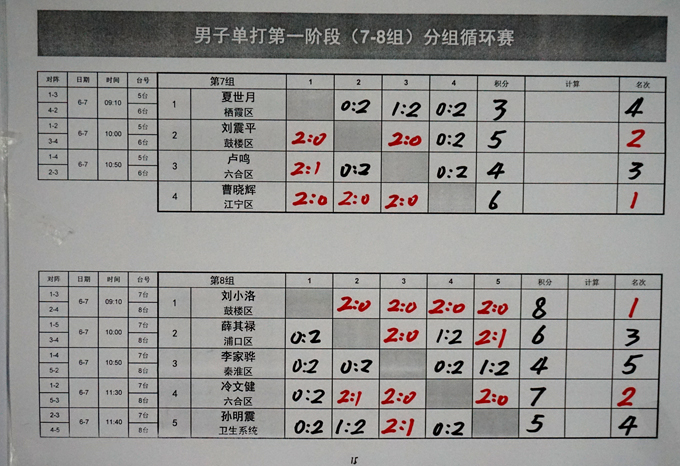 男子单打第一阶段（7-8组）分组循环赛
对阵 日期 时间 台号 第7组 1 2 3 4 积分 计算 名次
1-3 6-7 09:10 5台 1 夏世月 0:2 1:2 0:2 3 4
4-2 6台 栖霞区
1-2 6-7 10:00 5台 2 刘震平 2:0 2:0 0:2 5 2
3-4 6台 鼓楼区
1-4 6-7 10:50 5台 3 卢鸣 2:1 0:2 0:2 4 3
2-3 6台 六合区
4 曹晓辉 2:0 2:0 2:0 6 1
江宁区
对阵 日期 时间 台号 第8组 1 2 3 4 5 积分 计算 名次
1-3 6-7 09:10 7台 1 刘小洛 2:0 2:0 2:0 2:0 8 1
2-4 8台 鼓楼区
1-5 6-7 10:00 7台 2 薛其禄 0:2 2:0 1:2 2:1 6 3
3-4 8台 浦口区
1-4 6-7 10:50 7台 3 李家骅 0:2 0:2 0:2 1:2 4 5
5-2 8台 秦淮区
1-2 6-7 11:30 7台 4 冷文健 0:2 2:1 2:0 2:0 7 2
5-3 8台 六合区
2-3 6-7 11:40 7台 5 孙明震 0:2 1:2 2:1 0:2 5 4
4-5 8台 卫生系统
15